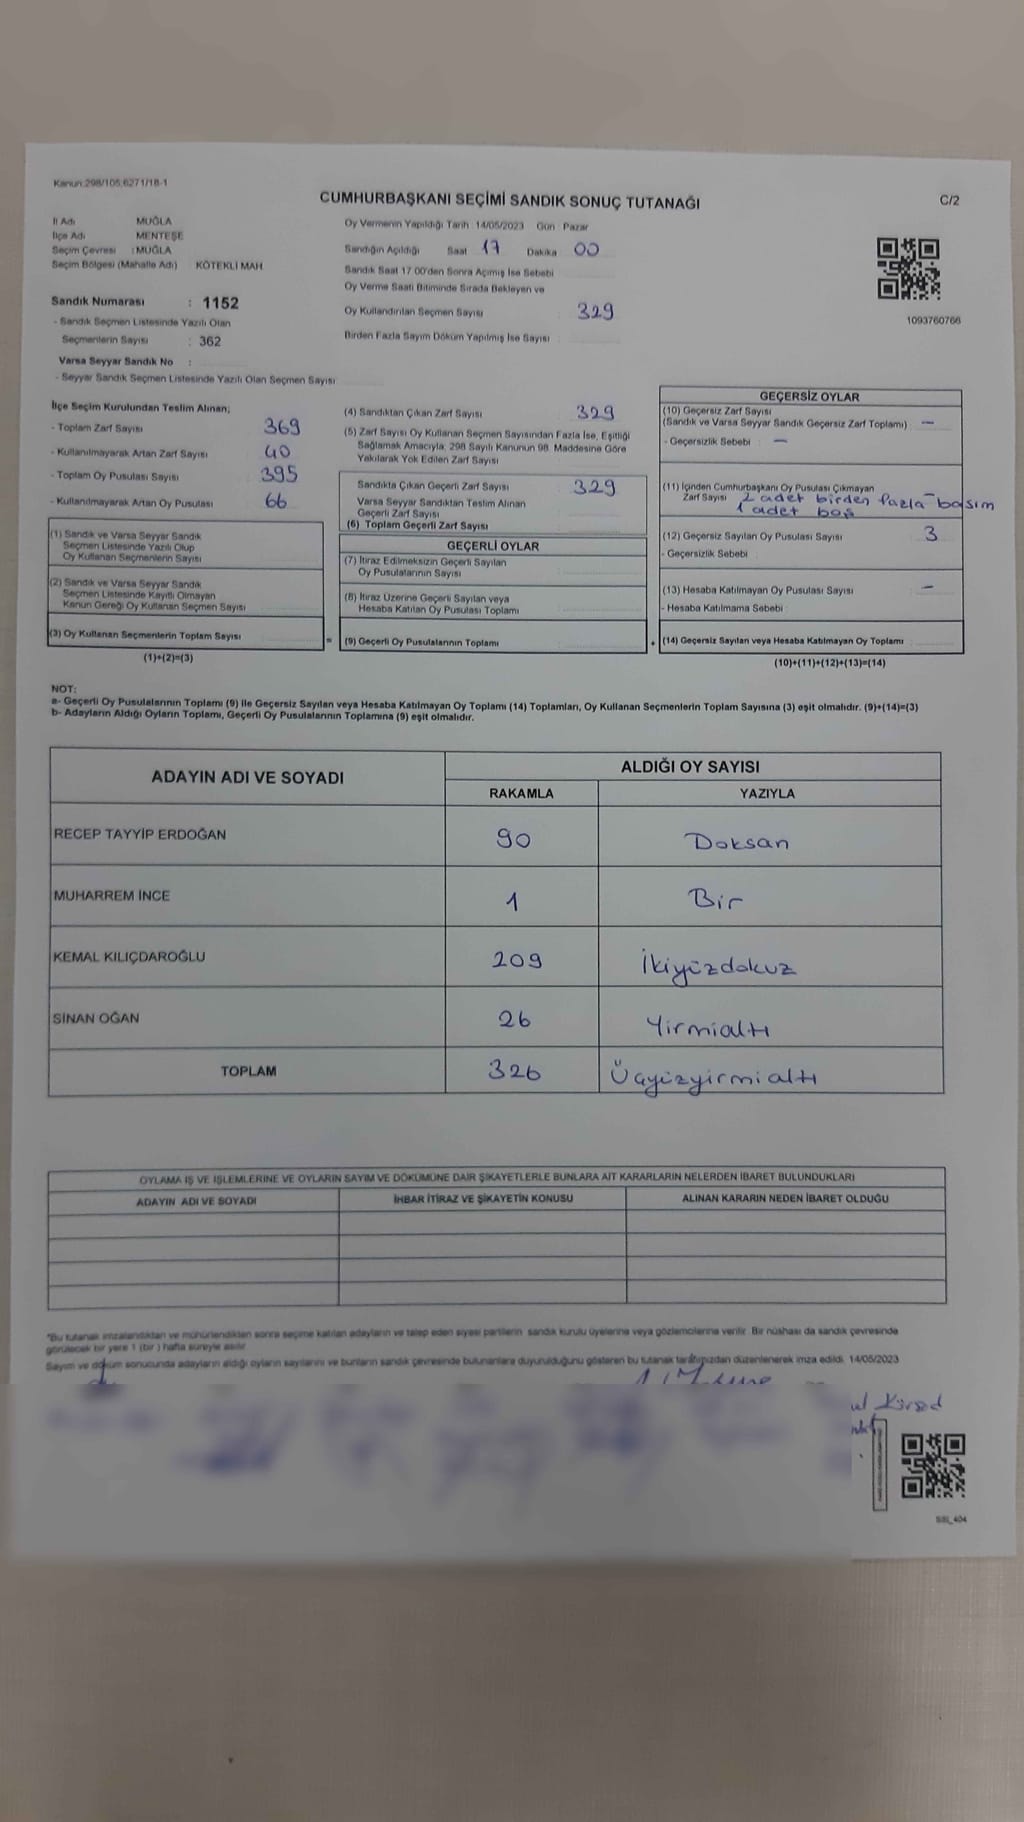 Kanun:298/105;6271/18-1
CUMHURBAŞKANI SEÇİMİ SANDIK SONUÇ TUTANAĞI
C/2
İl Adı MUĞLA
İlçe Adı MENTEŞE
Seçim Çevresi : MUĞLA
Seçim Bölgesi (Mahalle Adı) KÖTEKLİ MAH.
Oy Vermenin Yapıldığı Tarih 14/05/2023 Gün Pazar
Sandığın Açıldığı Saat 17 Dakika 00
Sandık Saat 17:00'den Sonra Açımış İse Sebebi
Oy Verme Saati Bitiminde Sırada Bekleyen ve
Oy Kullandırılan Seçmen Sayısı 329
Birden Fazla Sayım Döküm Yapılmış İse Sayısı
1093760766
Sandık Numarası : 1152
- Sandık Seçmen Listesinde Yazılı Olan
Seçmenlerin Sayısı : 362
Varsa Seyyar Sandık No :
- Seyyar Sandık Seçmen Listesinde Yazılı Olan Seçmen Sayısı
İlçe Seçim Kurulundan Teslim Alınan;
- Toplam Zarf Sayısı 369
- Kullanılmayarak Artan Zarf Sayısı 40
- Toplam Oy Pusulası Sayısı 395
- Kullanılmayarak Artan Oy Pusulası 66
(1) Sandık ve Varsa Seyyar Sandık
Seçmen Listesinde Yazılı Olup
Oy Kullanan Seçmenlerin Sayısı
(2) Sandık ve Varsa Seyyar Sandık
Seçmen Listesinde Kayıtlı Olmayan
Kanun Gereği Oy Kullanan Seçmen Sayısı
(3) Oy Kullanan Seçmenlerin Toplam Sayısı
(1)+(2)=(3)
(4) Sandıktan Çıkan Zarf Sayısı 329
(5) Zarf Sayısı Oy Kullanan Seçmen Sayısından Fazla İse, Eşitliği
Sağlamak Amacıyla; 298 Sayılı Kanunun 98. Maddesine Göre
Yakılarak Yok Edilen Zarf Sayısı
Sandıkta Çıkan Geçerli Zarf Sayısı 329
Varsa Seyyar Sandıktan Teslim Alınan
Geçerli Zarf Sayısı
(6) Toplam Geçerli Zarf Sayısı
GEÇERLİ OYLAR
(7) İtiraz Edilmeksizin Geçerli Sayılan
Oy Pusulalarının Sayısı
(8) İtiraz Üzerine Geçerli Sayılan veya
Hesaba Katılan Oy Pusulası Toplamı
= (9) Geçerli Oy Pusulalarının Toplamı
GEÇERSİZ OYLAR
(10) Geçersiz Zarf Sayısı
(Sandık ve Varsa Seyyar Sandık Geçersiz Zarf Toplamı) —
- Geçersizlik Sebebi : —
(11) İçinden Cumhurbaşkanı Oy Pusulası Çıkmayan
Zarf Sayısı 2 adet birden fazla basım
1 adet boş
(12) Geçersiz Sayılan Oy Pusulası Sayısı 3
- Geçersizlik Sebebi :
(13) Hesaba Katılmayan Oy Pusulası Sayısı —
- Hesaba Katılmama Sebebi :
+ (14) Geçersiz Sayılan veya Hesaba Katılmayan Oy Toplamı
(10)+(11)+(12)+(13)=(14)
NOT:
a- Geçerli Oy Pusulalarının Toplamı (9) ile Geçersiz Sayılan veya Hesaba Katılmayan Oy Toplamı (14) Toplamları, Oy Kullanan Seçmenlerin Toplam Sayısına (3) eşit olmalıdır. (9)+(14)=(3)
b- Adayların Aldığı Oyların Toplamı, Geçerli Oy Pusulalarının Toplamına (9) eşit olmalıdır.
ADAYIN ADI VE SOYADI ALDIĞI OY SAYISI
RAKAMLA YAZIYLA
RECEP TAYYİP ERDOĞAN 90 Doksan
MUHARREM İNCE 1 Bir
KEMAL KILIÇDAROĞLU 209 İkiyüzdokuz
SİNAN OĞAN 26 Yirmialtı
TOPLAM 326 Üçyüzyirmialtı
OYLAMA İŞ VE İŞLEMLERİNE VE OYLARIN SAYIM VE DÖKÜMÜNE DAİR ŞİKAYETLERLE BUNLARA AİT KARARLARIN NELERDEN İBARET BULUNDUKLARI
ADAYIN ADI VE SOYADI İHBAR İTİRAZ VE ŞİKAYETİN KONUSU ALINAN KARARIN NEDEN İBARET OLDUĞU
*Bu tutanak imzalandıktan ve mühürlendikten sonra seçime katılan adayların ve talep eden siyasi partilerin sandık kurulu üyelerine veya gözlemcilerine verilir. Bir nüshası da sandık çevresinde
görülecek bir yere 1 (bir) hafta süreyle asılır.
Sayım ve döküm sonucunda adayların aldığı oyların sayılarını ve bunların sandık çevresinde bulunanlara duyurulduğunu gösteren bu tutanak tarafımızdan düzenlenerek imza edildi. 14/05/2023
SSL_404